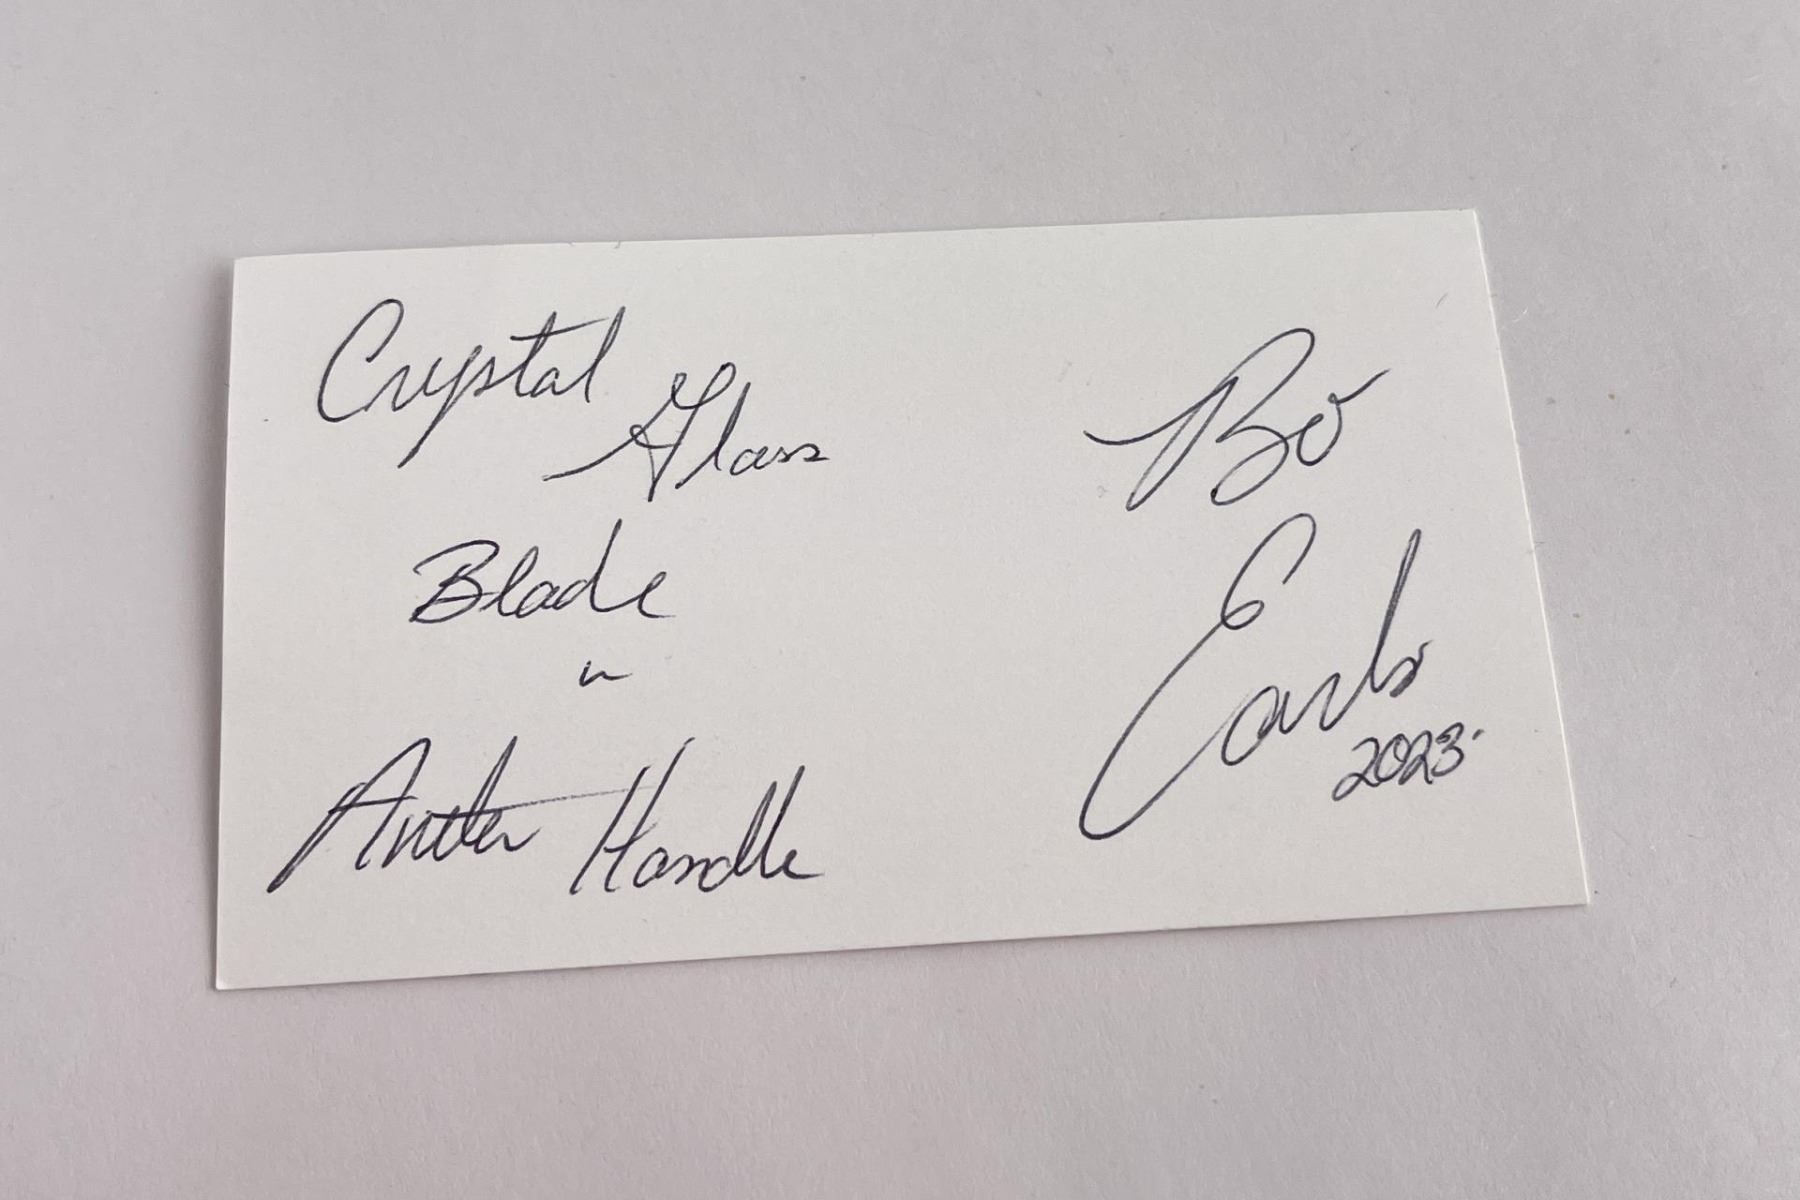 Crystal
Glass
Blade
Antler Handle
Bo
Earls
2023